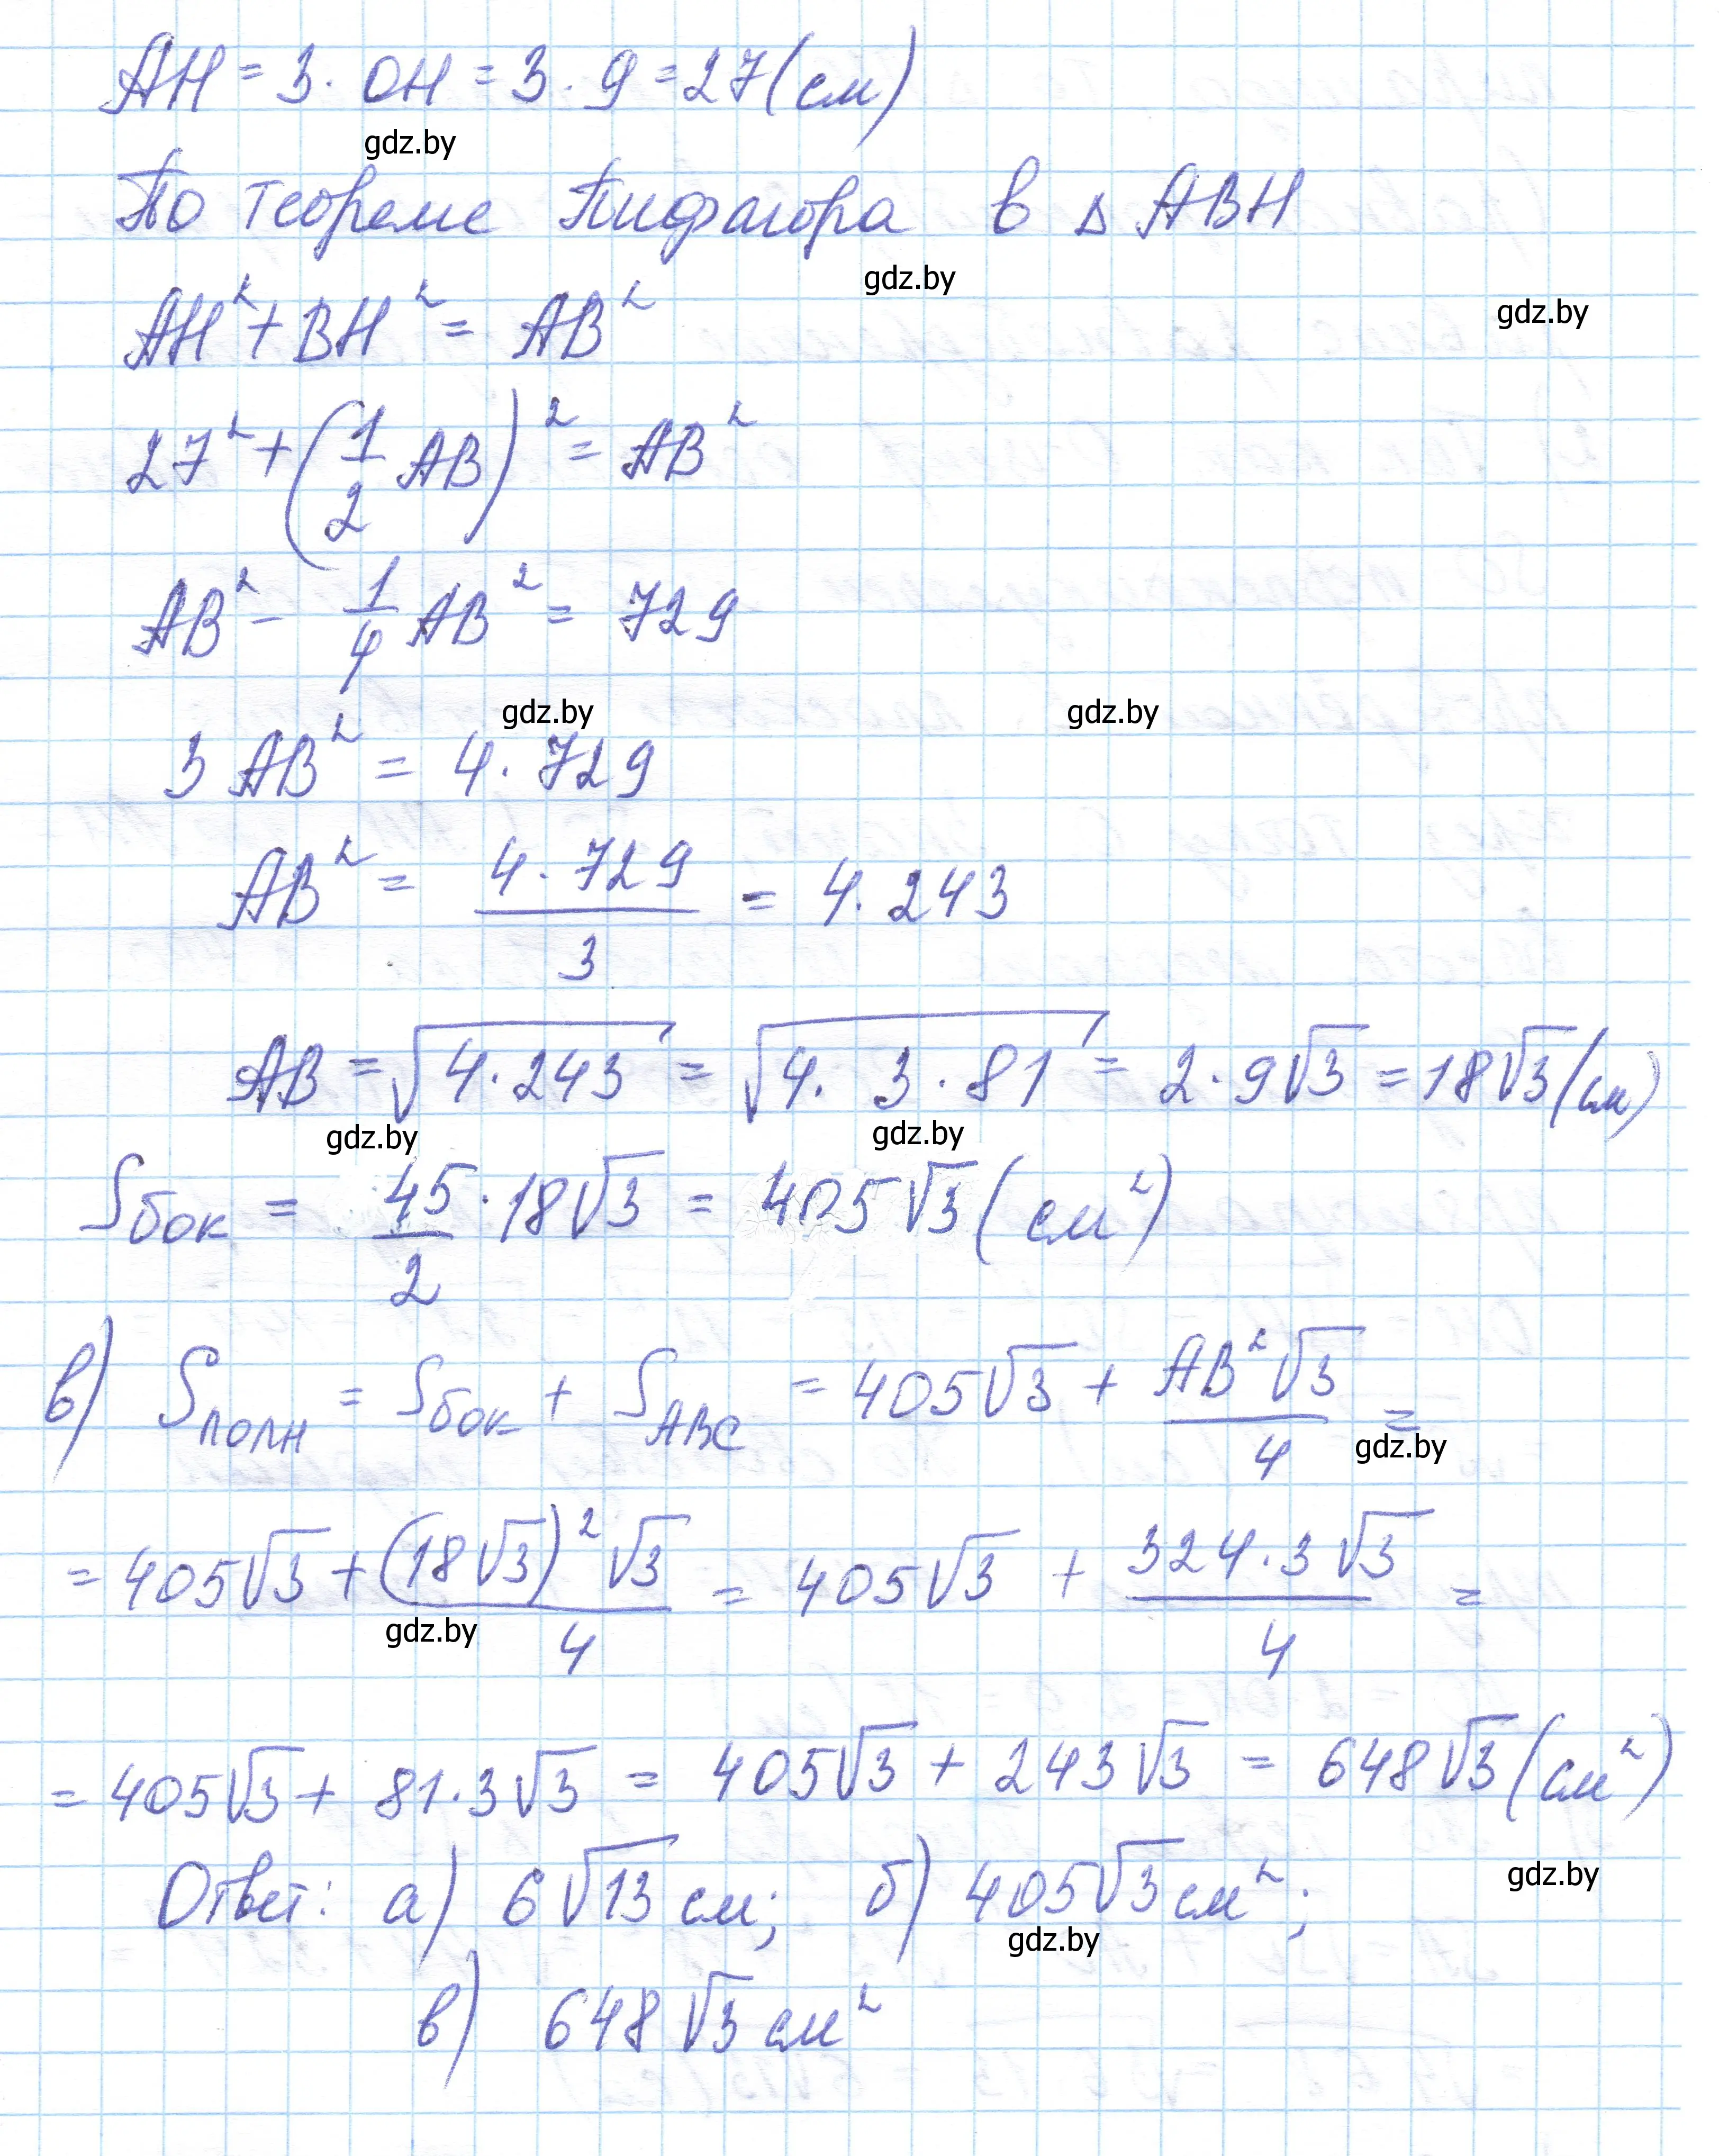 AH = 3 · OH = 3 · 9 = 27 (см)
gdz.by
По теореме Пифагора в △ ABH
gdz.by
gdz.by
AH² + BH² = AB²
27² + (1/2 AB)² = AB²
AB² - 1/4 AB² = 729
gdz.by gdz.by
3 AB² = 4 · 729
AB² = 4 · 729 / 3 = 4 · 243
AB = √(4 · 243) = √(4 · 3 · 81) = 2 · 9√3 = 18√3 (см)
gdz.by gdz.by
Sбок = 45/2 · 18√3 = 405√3 (см²)
в) Sполн = Sбок + SABC = 405√3 + AB²√3/4 =
gdz.by
= 405√3 + (18√3)²√3/4 = 405√3 + 324 · 3√3/4 =
gdz.by
= 405√3 + 81 · 3√3 = 405√3 + 243√3 = 648√3 (см²)
gdz.by
Ответ: а) 6√13 см; б) 405√3 см²;
gdz.by
в) 648√3 см²